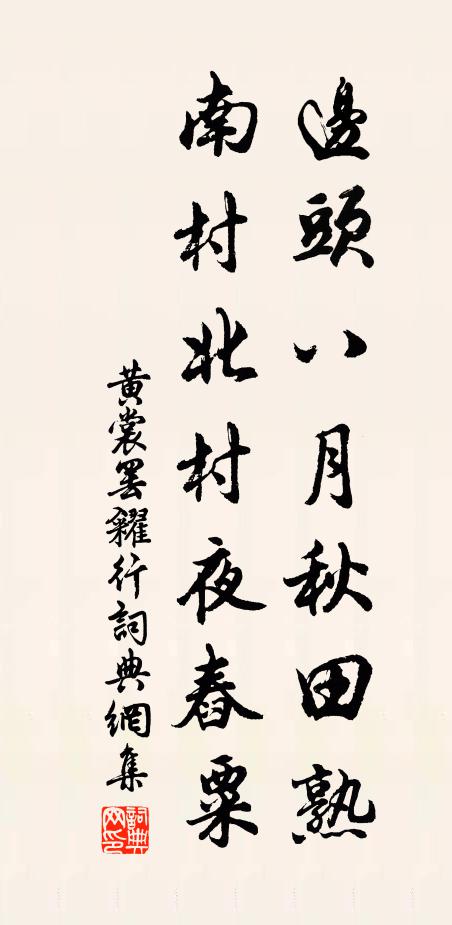 邊頭八月秋田熟
南村北村夜舂粟
黃裳罷糴行詞典網集
詞典網印